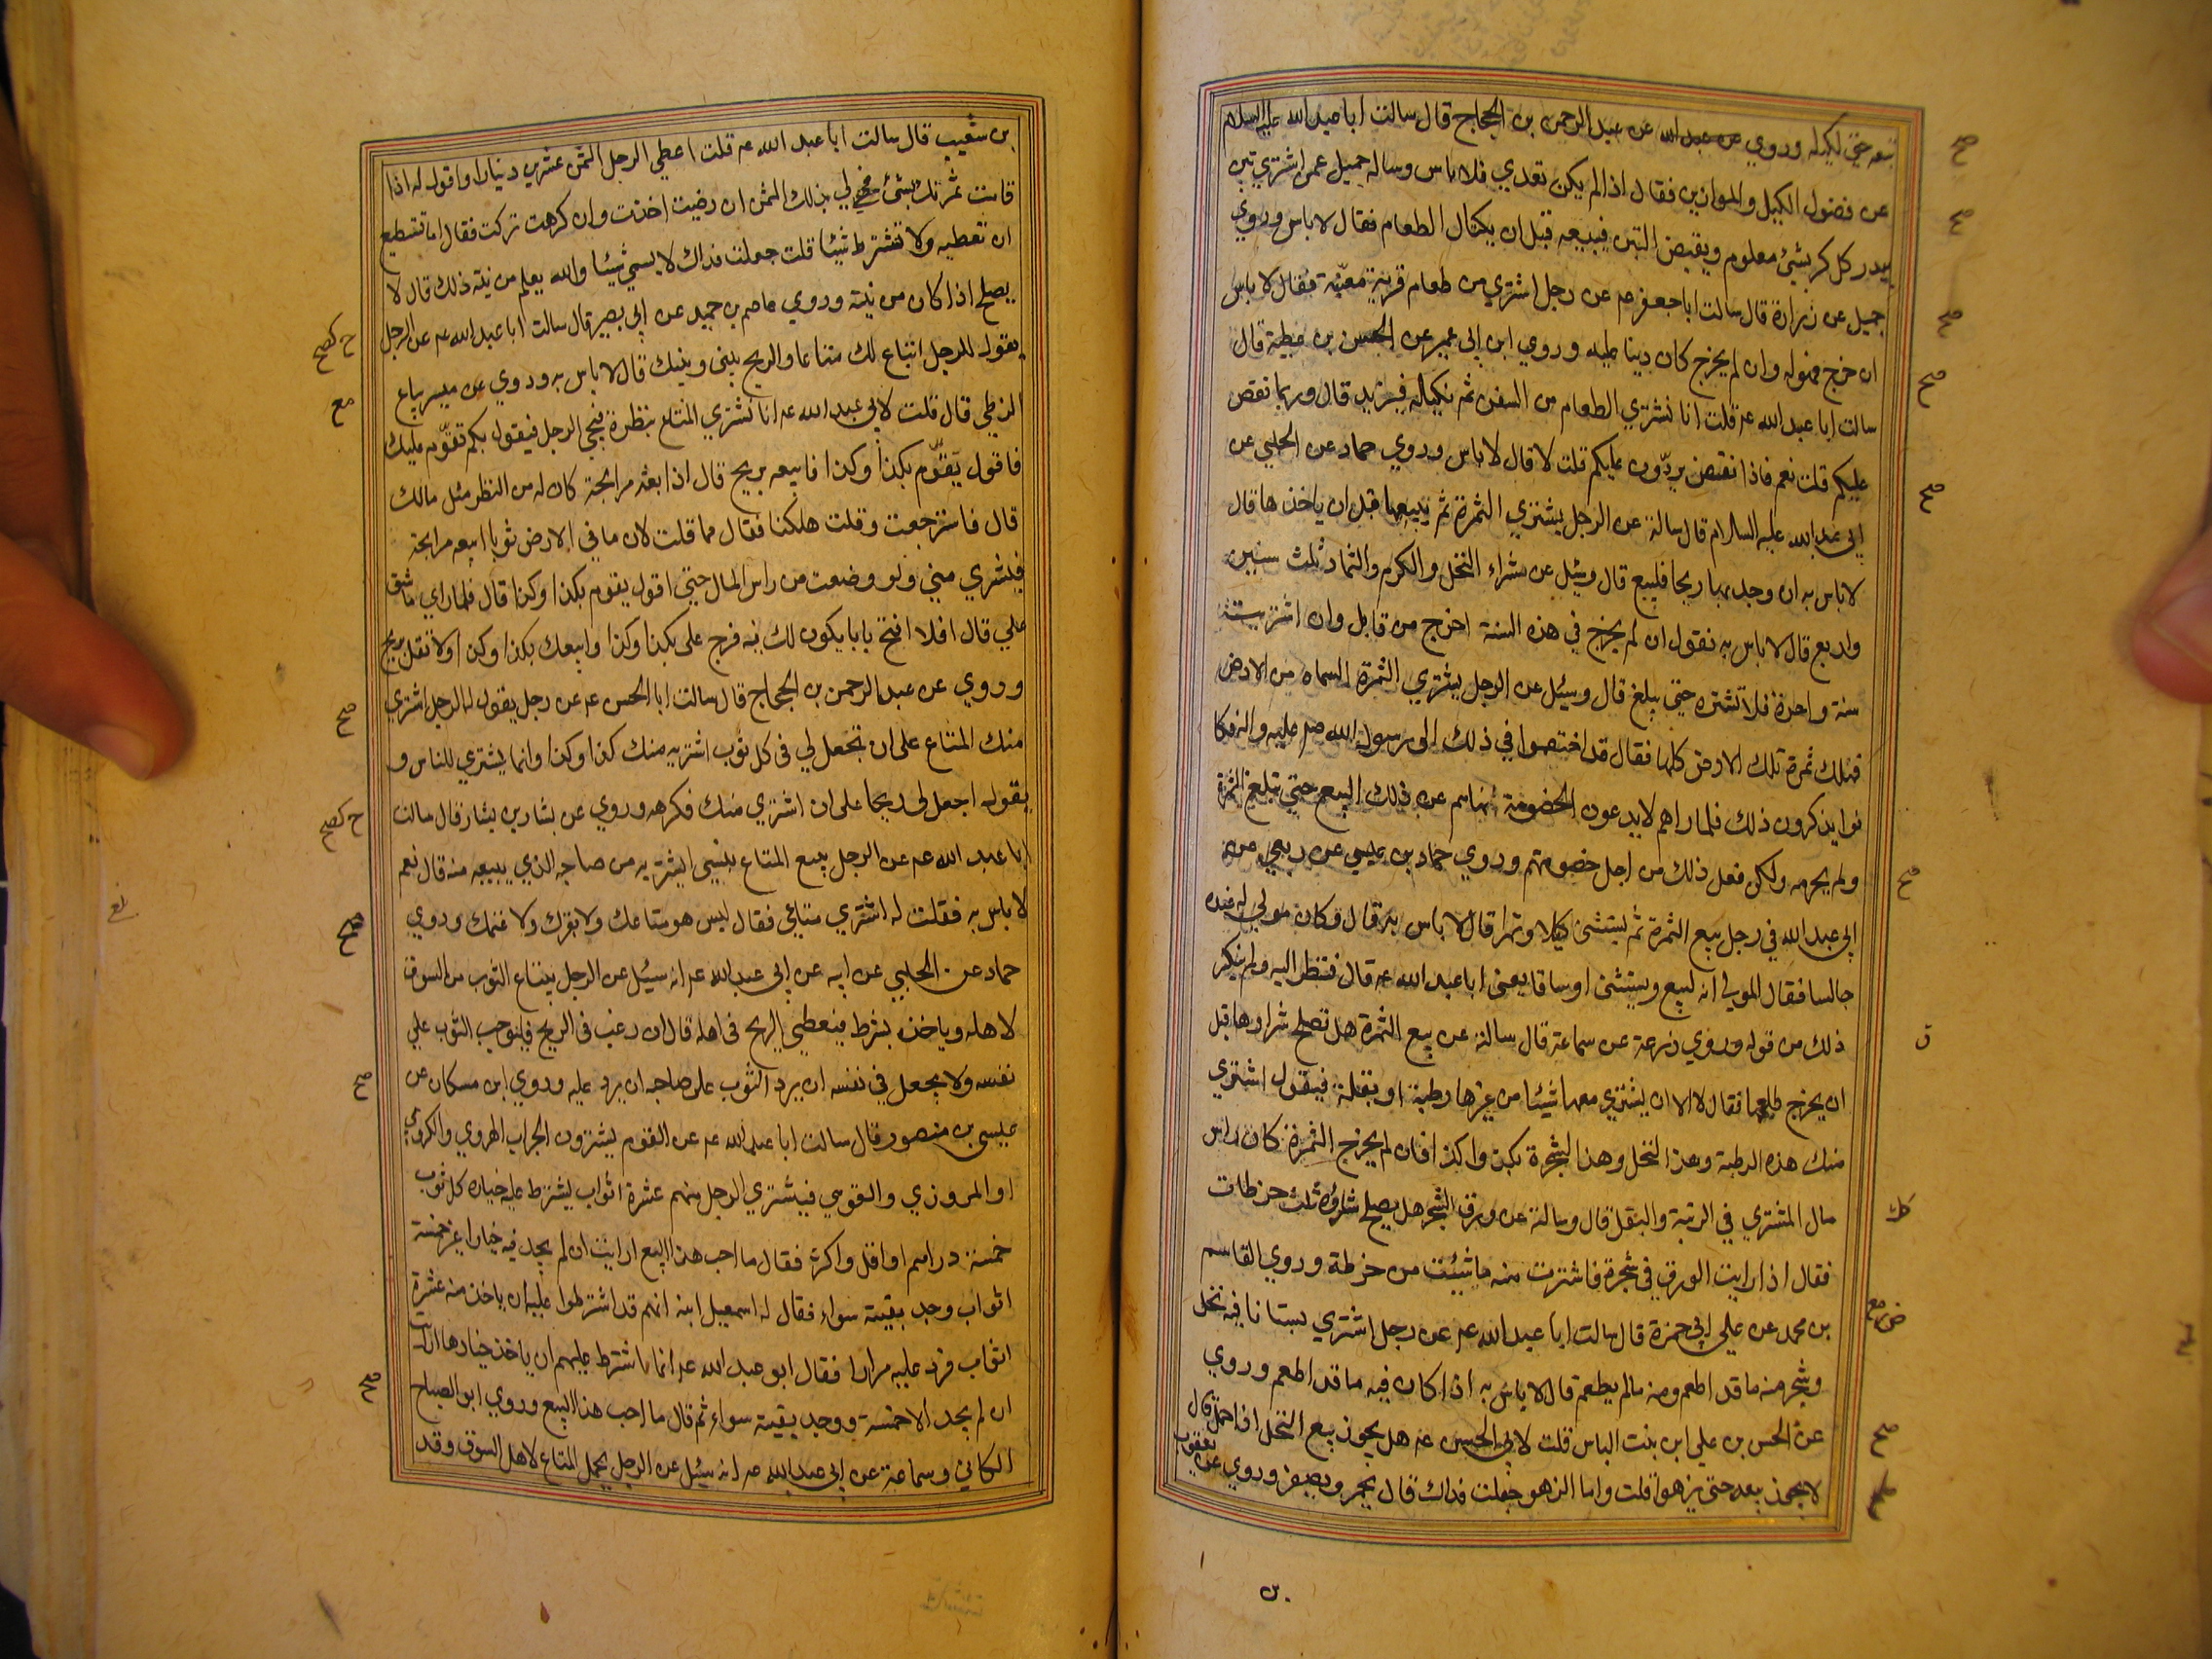 تبعه حتى تكيله وروي عن عبد الله عن عبد الرحمن بن الحجاج قال سالت ابا عبد الله عليه السلام
عن فضول الكيل والموازين فقال اذا لم يكن تعدي فلا باس وساله جميل عمن اشتري تبن
بيدر كل كر بشئ معلوم ويقبض التبن فيبيعه قبل ان يكتال الطعام فقال لا باس وروي
جميل عن زرارة قال سالت ابا جعفر عم عن رجل اشتري من طعام قرية معينة فقال لا باس
ان خرج فهو له وان لم يخرج كان دينا عليه وروي ابن ابي عمير عن الحسن بن عطية قال
سالت ابا عبد الله عم قلت انا نشتري الطعام من السفن ثم نكيله فيزيد قال وربما نقص
عليكم قلت نعم فاذا نقص يردّون عليكم قلت لا قال لا باس وروي حماد عن الحلبي عن
ابي عبد الله عليه السلام قال سالته عن الرجل يشتري الثمرة ثم يبيعها قبل ان ياخذها قال
لا باس به ان وجد بها ربحا فليبع قال وسئل عن شراء النخل والكرم والثمار ثلث سنين
واربع قال لا باس به تقول ان لم يخرج في هذه السنة اخرج من قابل وان اشتريته
سنة واحدة فلا تشتره حتى يبلغ قال وسئل عن الرجل يشتري الثمرة المسماه من الارض
فهلك ثمرة تلك الارض كلها فقال قد اختصموا في ذلك الى رسول الله صلى عليه واله فكا
نوا يذكرون ذلك فلما راهم لا يدعون الخصومة نهاهم عن ذلك البيع حتى تبلغ الثمرة
ولم يحرمه ولكن فعل ذلك من اجل خصومتهم وروي حماد بن عيسى عن ربعي عن
ابي عبد الله في رجل يبيع الثمرة ثم يستثنى كيلا وتمرا قال لا باس به قال وكان مولى له عنده
جالسا فقال المولى انه ليبيع ويستثنى اوساقا يعنى ابا عبد الله عم قال فنظر اليه ولم ينكر
ذلك من قوله وروي زرعة عن سماعة قال سالته عن بيع الثمرة هل تصلح شراوها قبل
ان يخرج طلعها فقال لا الا ان يشتري معها شيئا من غيرها رطبة او بقلة فيقول اشتري
منك هذه الرطبة وهذا النخل وهذا الشجرة بكذا وكذا فان لم يخرج الثمرة كان راس
مال المشتري في الرتبة والبقل قال وسالته عن ورق الشجر هل يصلح شراؤه ثلث خرطات
فقال اذا رايت الورق في شجرة فاشترت منه ما شئت من خرطة وروي القاسم
بن محمد عن علي ابي حمزة قال سالت ابا عبد الله عم عن رجل اشتري بستانا فيه نخل
وشجر منه ما قد اطعم ومنه مالم يطعم قال لا باس به اذا كان فيه ما قد اطعم وروي
عن الحسن بن علي ابن بنت الياس قلت لابي الحسن عم هل يجوز بيع النخل اذا حمل قال
لا يجوز بيعه حتى يزهوا قلت واما الزهو جعلت فداك قال يحمر ويصفر وروي عن يعقوب
بن شعيب قال سالت ابا عبد الله عم قلت اعطى الرجل الثمن عشرين دينارا واقول له اذا
قامت ثمرتك بشئ فهي لي بذلك الثمن ان رضيت اخذت وان كرهت تركت فقال اما تستطيع
ان تعطيه ولا تشترط شيئا قلت جعلت فداك لا يسمى شيئا والله يعلم من نيته ذلك قال لا
يصلح اذا كان من نيته وروي عاصم بن حميد عن ابي بصير قال سالت ابا عبد الله عم عن الرجل
يقول للرجل ابتاع لك متاعا والربح بيني وبينك قال لا باس به وروي عن ميسر بياع
الزطي قال قلت لابي عبد الله عم انا نشتري المتاع بنظرة فيجئ الرجل فيقول بكم تقوّم عليك
فاقول يتقوّم بكذا وكذا فابيعه بربح قال اذا بعته مرابحة كان له من النظر مثل مالك
قال فاسترجعت وقلت هلكنا فقال مما قلت لان ما في الارض ثوبا ابيعه مرابحة
فيشتري مني ولو وضعت من راس المال حتى اقول يقوم بكذا وكذا قال فلما راي ما شق
علي قال افلا افتح بابا يكون لك فيه فرج على بكذا وكذا وابيعك بكذا وكذا ولا تقل بربح
وروي عن عبد الرحمن بن الحجاج قال سالت ابا الحسن عم عن رجل يقول له الرجل اشتري
منك المتاع على ان تجعل لي في كل ثوب اشتريه منك كذا وكذا وانما يشتري للناس و
يقول اجعل لي ربحا على ان اشتري منك فكرهه وروي عن بشار بن يشار قال سالت
ابا عبد الله عم عن الرجل يبيع المتاع بنسئ ايشتريه من صاحبه الذي يبيعه منه قال نعم
لا باس به فقلت له اشتري متاعي فقال ليس هو متاعك ولا بقرك ولا غنمك وروي
حماد عن الحلبي عن ابيه عن ابي عبد الله عم انه سئل عن الرجل يبتاع الثوب من السوق
لاهله وياخذه بشرط فيعطى الربح في اهله قال ان رغب في الربح فليوجب الثوب على
نفسه ولا يجعل في نفسه ان يرد الثوب على صاحبه ان يرد عليه وروي ابن مسكان عن
عيسى بن منصور قال سالت ابا عبد الله عم عن القوم يشترون الجراب الهروي والكروي
او المروزي والقوسي فيشتري الرجل منهم عشرة اثواب يشترط عليه خياره كل ثوب
خمسة دراهم او اقل واكثر فقال ما احب هذا البيع ارايت ان لم يجد فيه خيارا غير خمسة
اثواب وجد بقيته سواء فقال له اسمعيل ابنه انهم قد اشترطوا عليه ان ياخذ منه عشرة
اثواب فرد عليه مرارا فقال ابو عبد الله عم انما اشترط عليهم ان ياخذ خيارها ارايت
ان لم يجد الا خمسة ووجد بقيته سواء ثم قال ما احب هذا البيع وروي ابو الصباح
الكناني وسماعة عن ابي عبد الله عم انه سئل عن الرجل يحمل المتاع لاهل السوق وقد